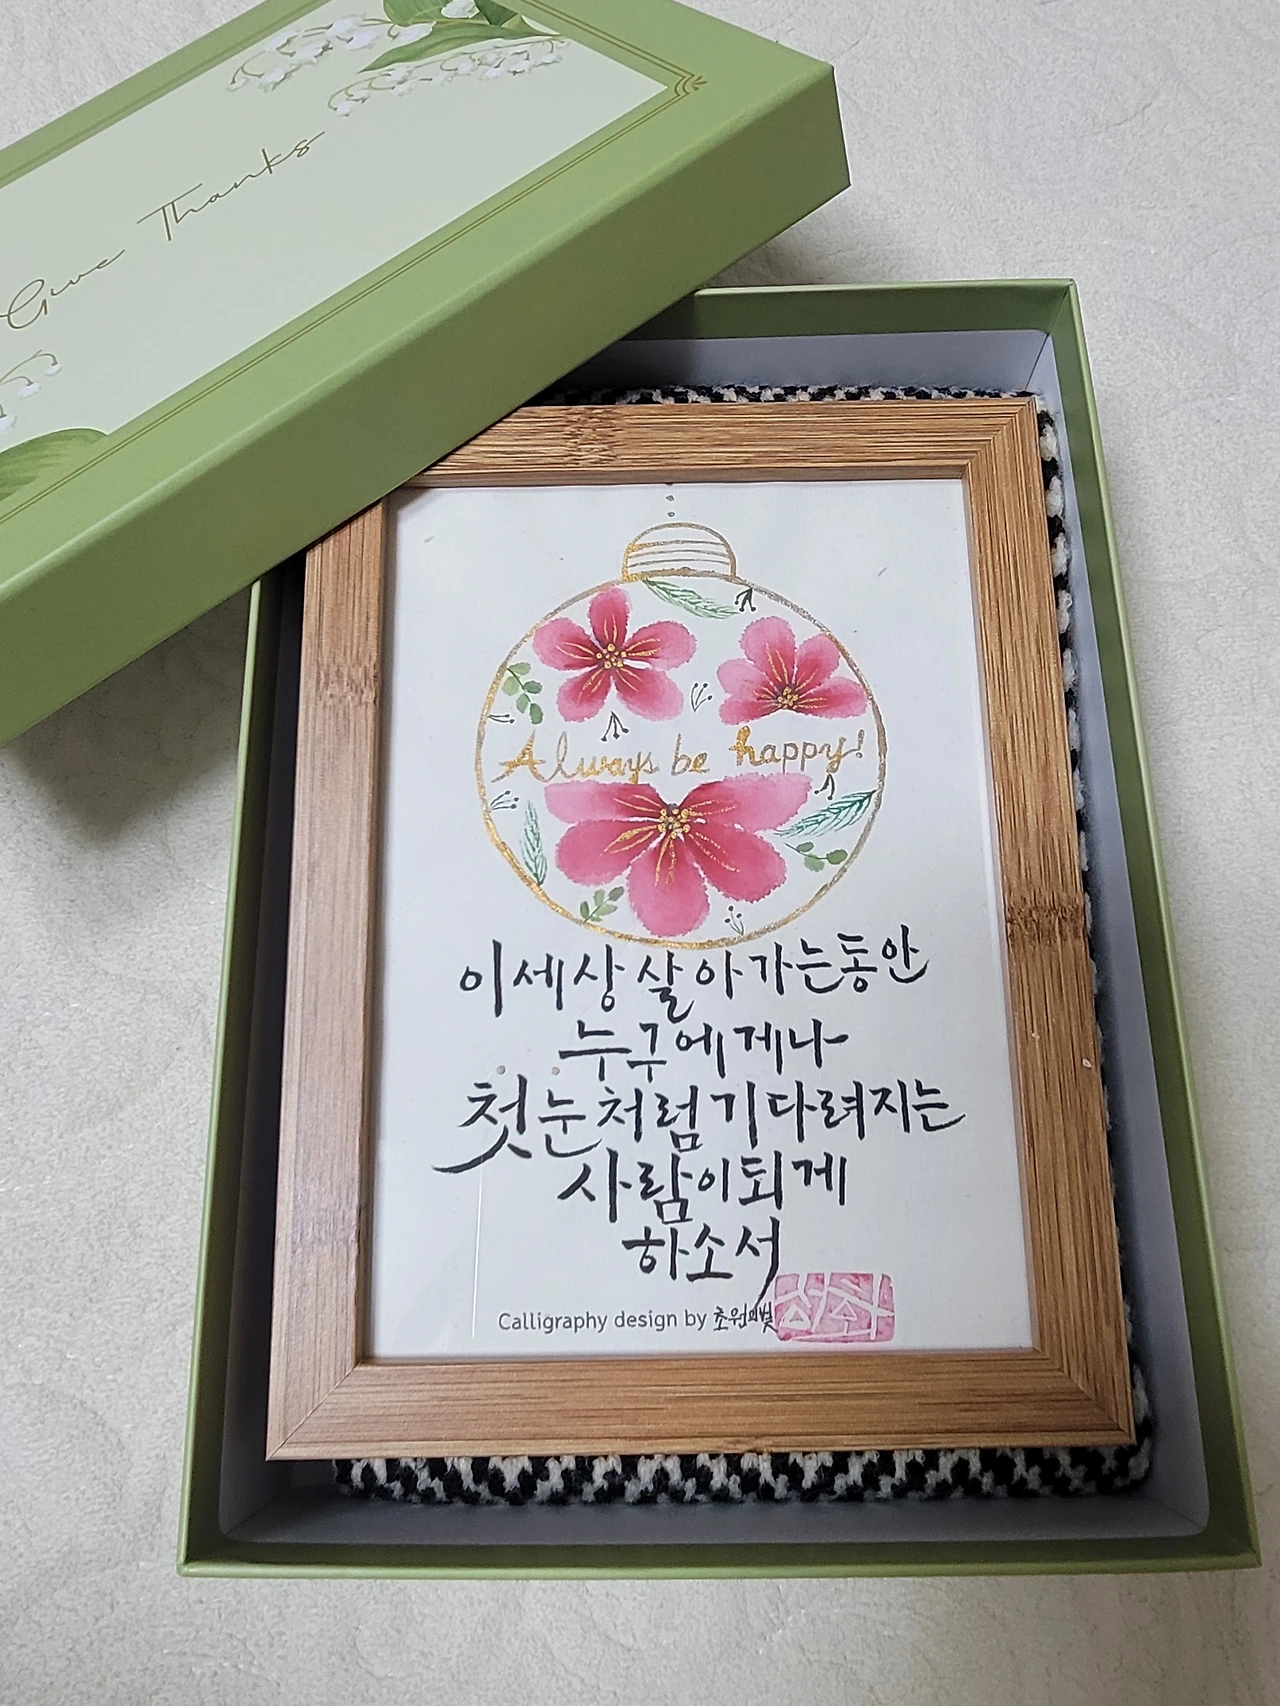 Give Thanks
Always be happy!
이 세상 살아가는 동안
누구에게나
첫눈처럼 기다려지는
사람이 되게
하소서
Calligraphy design by 초원의빛